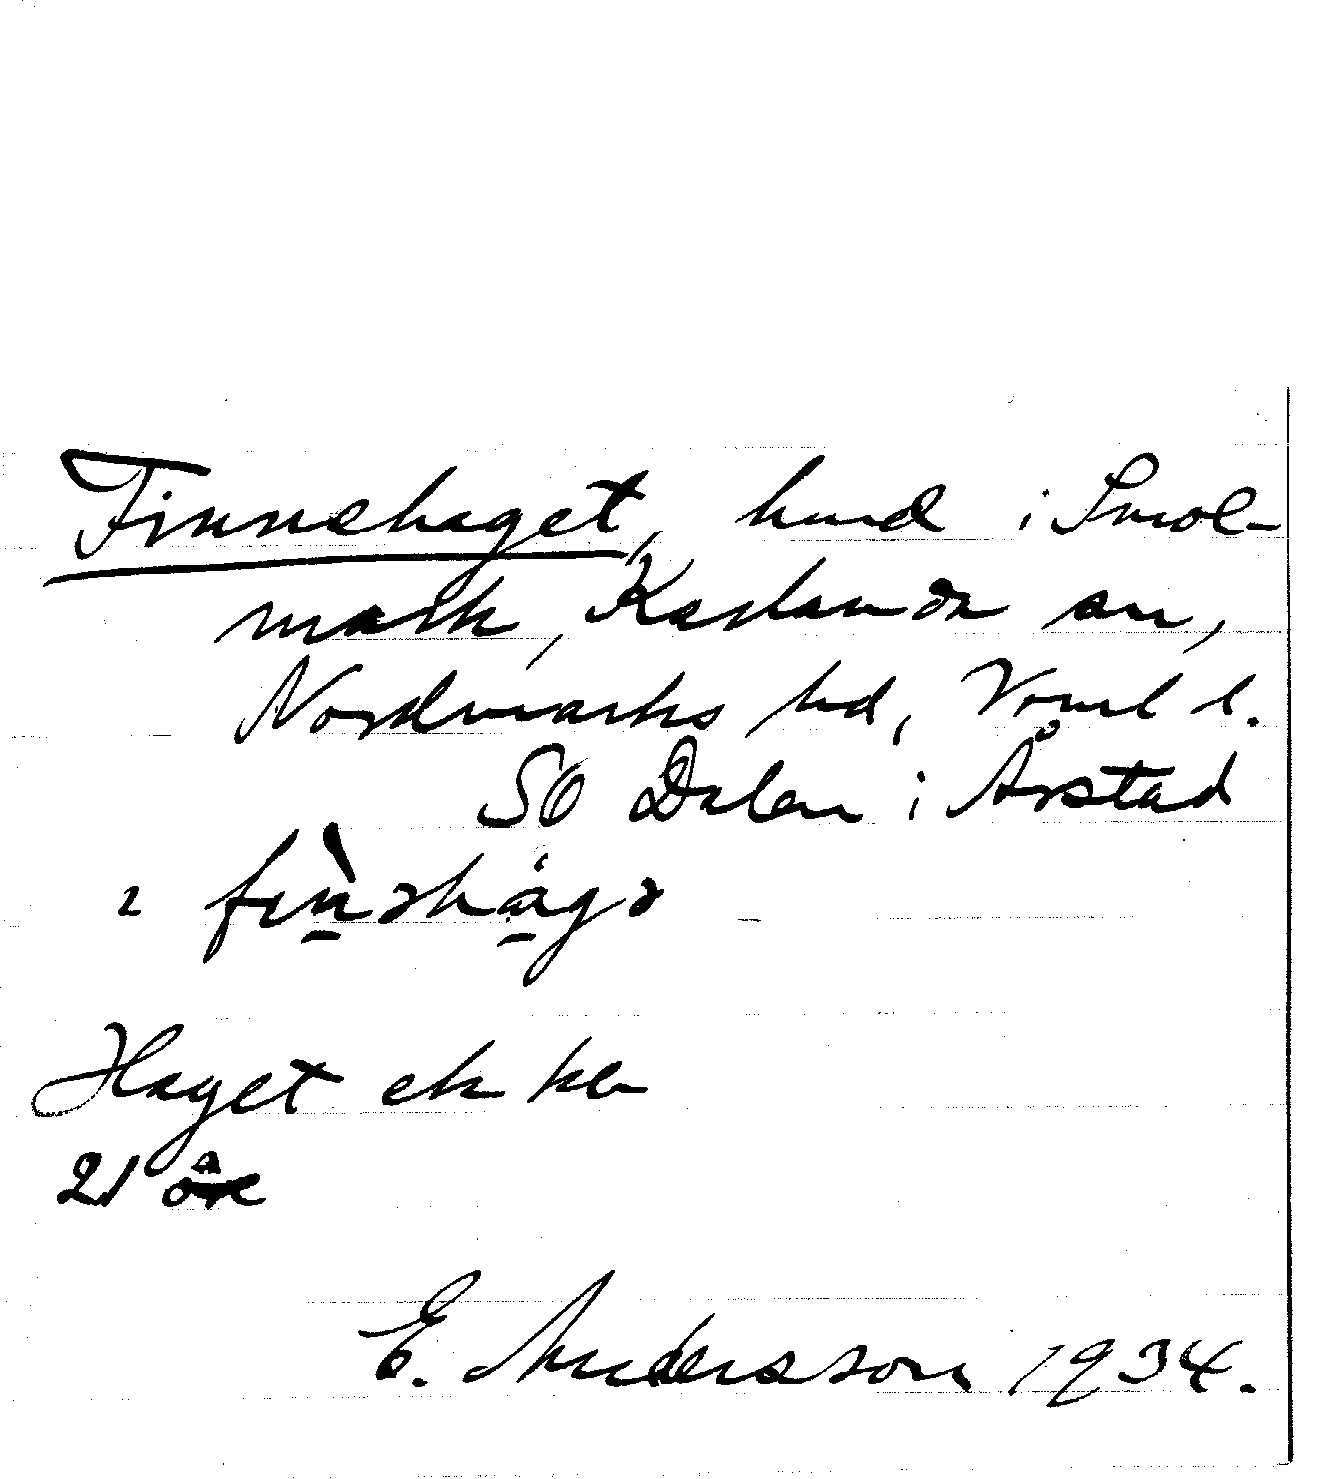 Finnehaget, hmd i Smol-
mark, Karlanda sn,
Nordmarks hd, Vrml l.
SO Dalen i Årstad
² finəhagə
Haget ek ka
21
E. Andersson 1934.